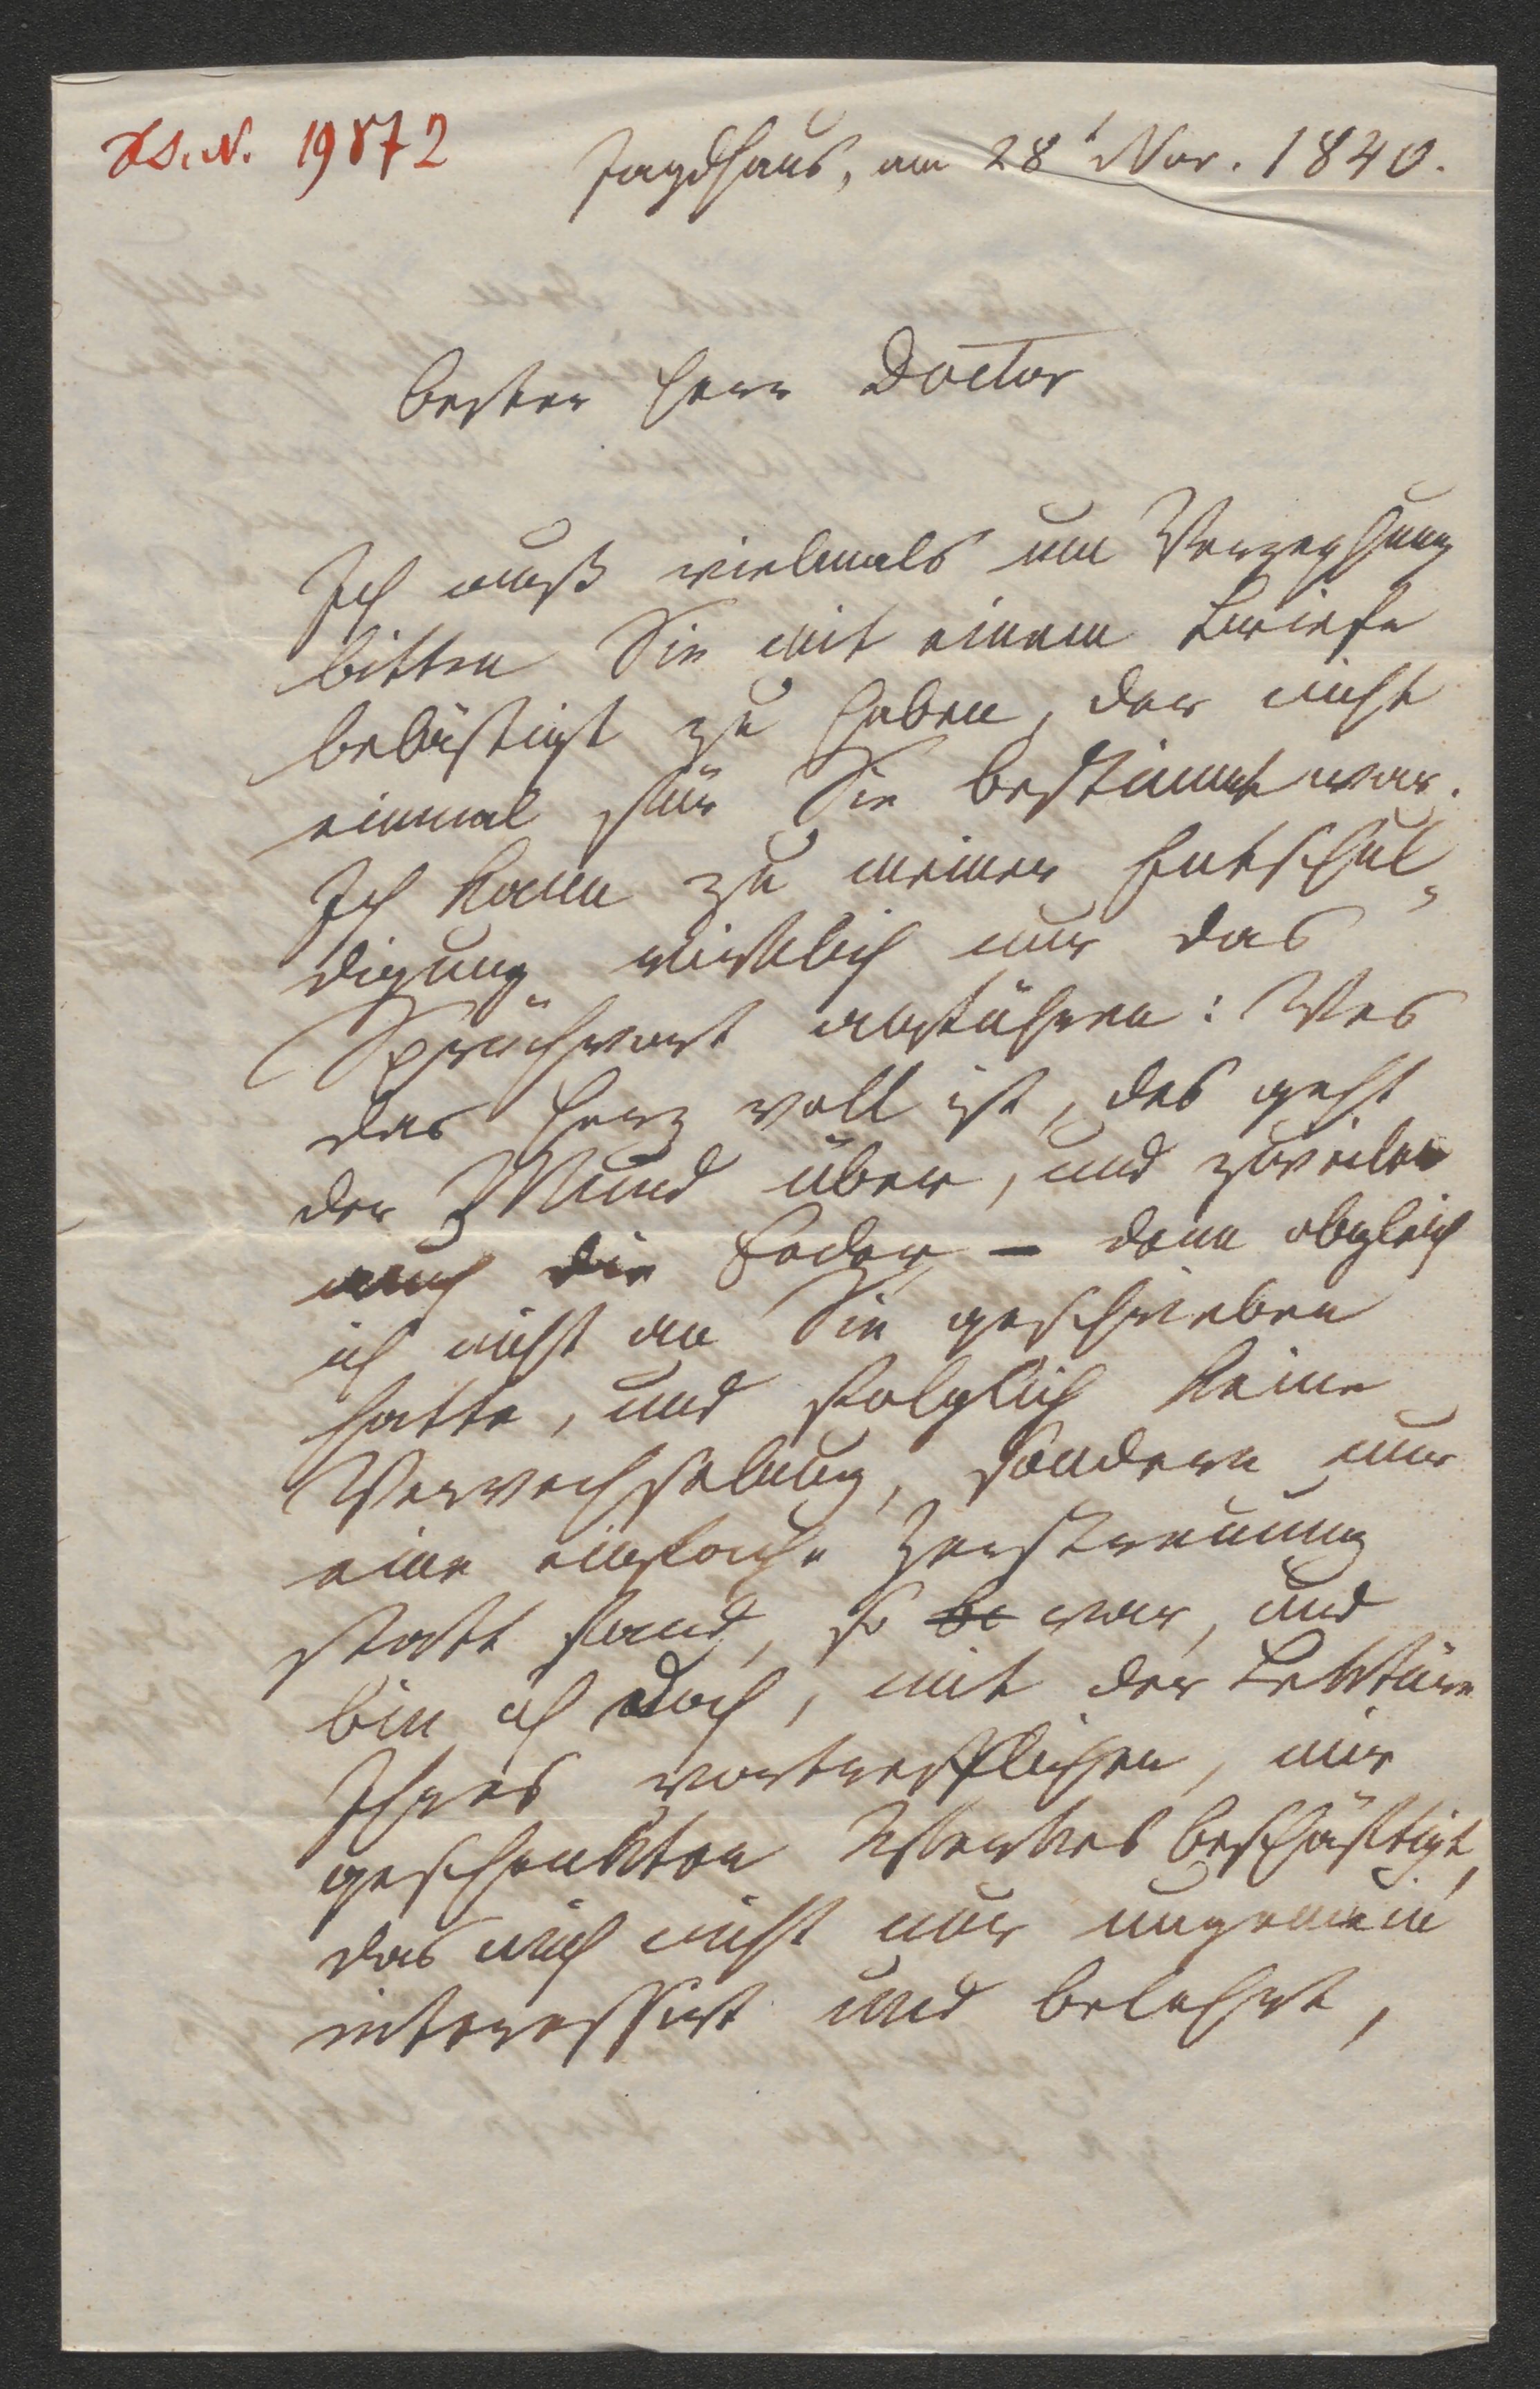 H.I.N. 19872
Jagdhaus, am 28t Nov. 1840.
bester Herr Doctor
Ich muß vielmals um Verzeyhung
bitten Sie mit einem Briefe
belästigt zu haben, der nicht
einmal für Sie bestimmt war.
Ich kann zu meiner Entschul„
digung wirklich nur das
Sprüchwort anführen: Wes
das Herz voll ist, des geht
der Mund über, und zuweilen
auch die Feder – denn obgleich
ich nicht an Sie geschrieben
hatte, und folglich keine
Verwechselung, sondern nur
eine einfache Zerstreuung
statt fand, so be war, und
bin ich doch, mit der Lektüre
Ihres vortrefflichen, mir
geschenkten Werkes beschäftigt,
das mich nicht nur ungemein
interessirt und belehrt,